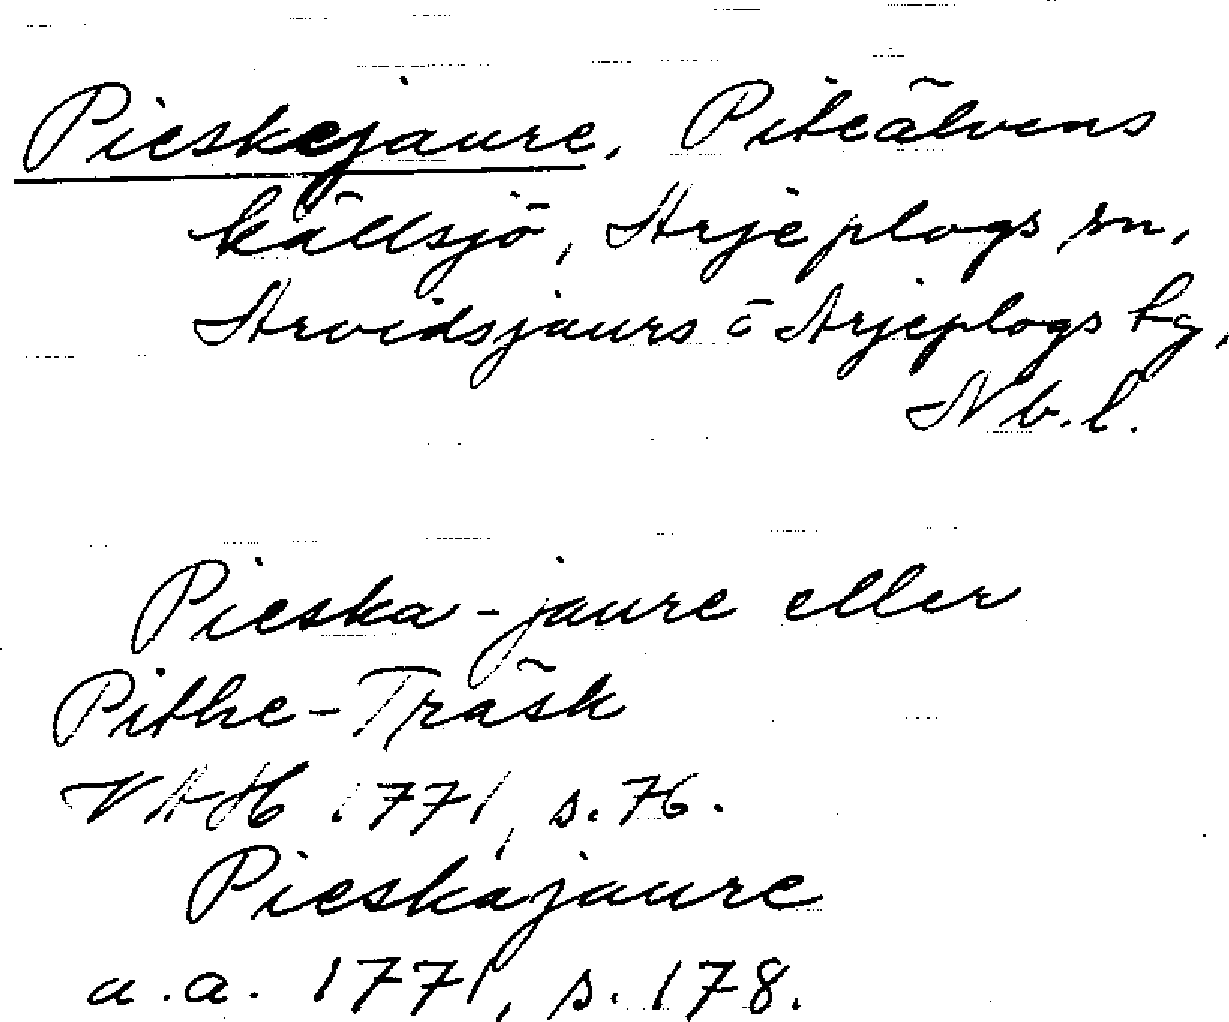 Pieskejaure, Piteälvens
källsjö, Arjeplogs sn,
Arvidsjaurs o Arjeplogs tg,
Nb.l.
Pieska-jaure eller
Pithe-Träsk
VAH 1771, s. 76.
Pieskajaure
a.a. 1771, s. 178.